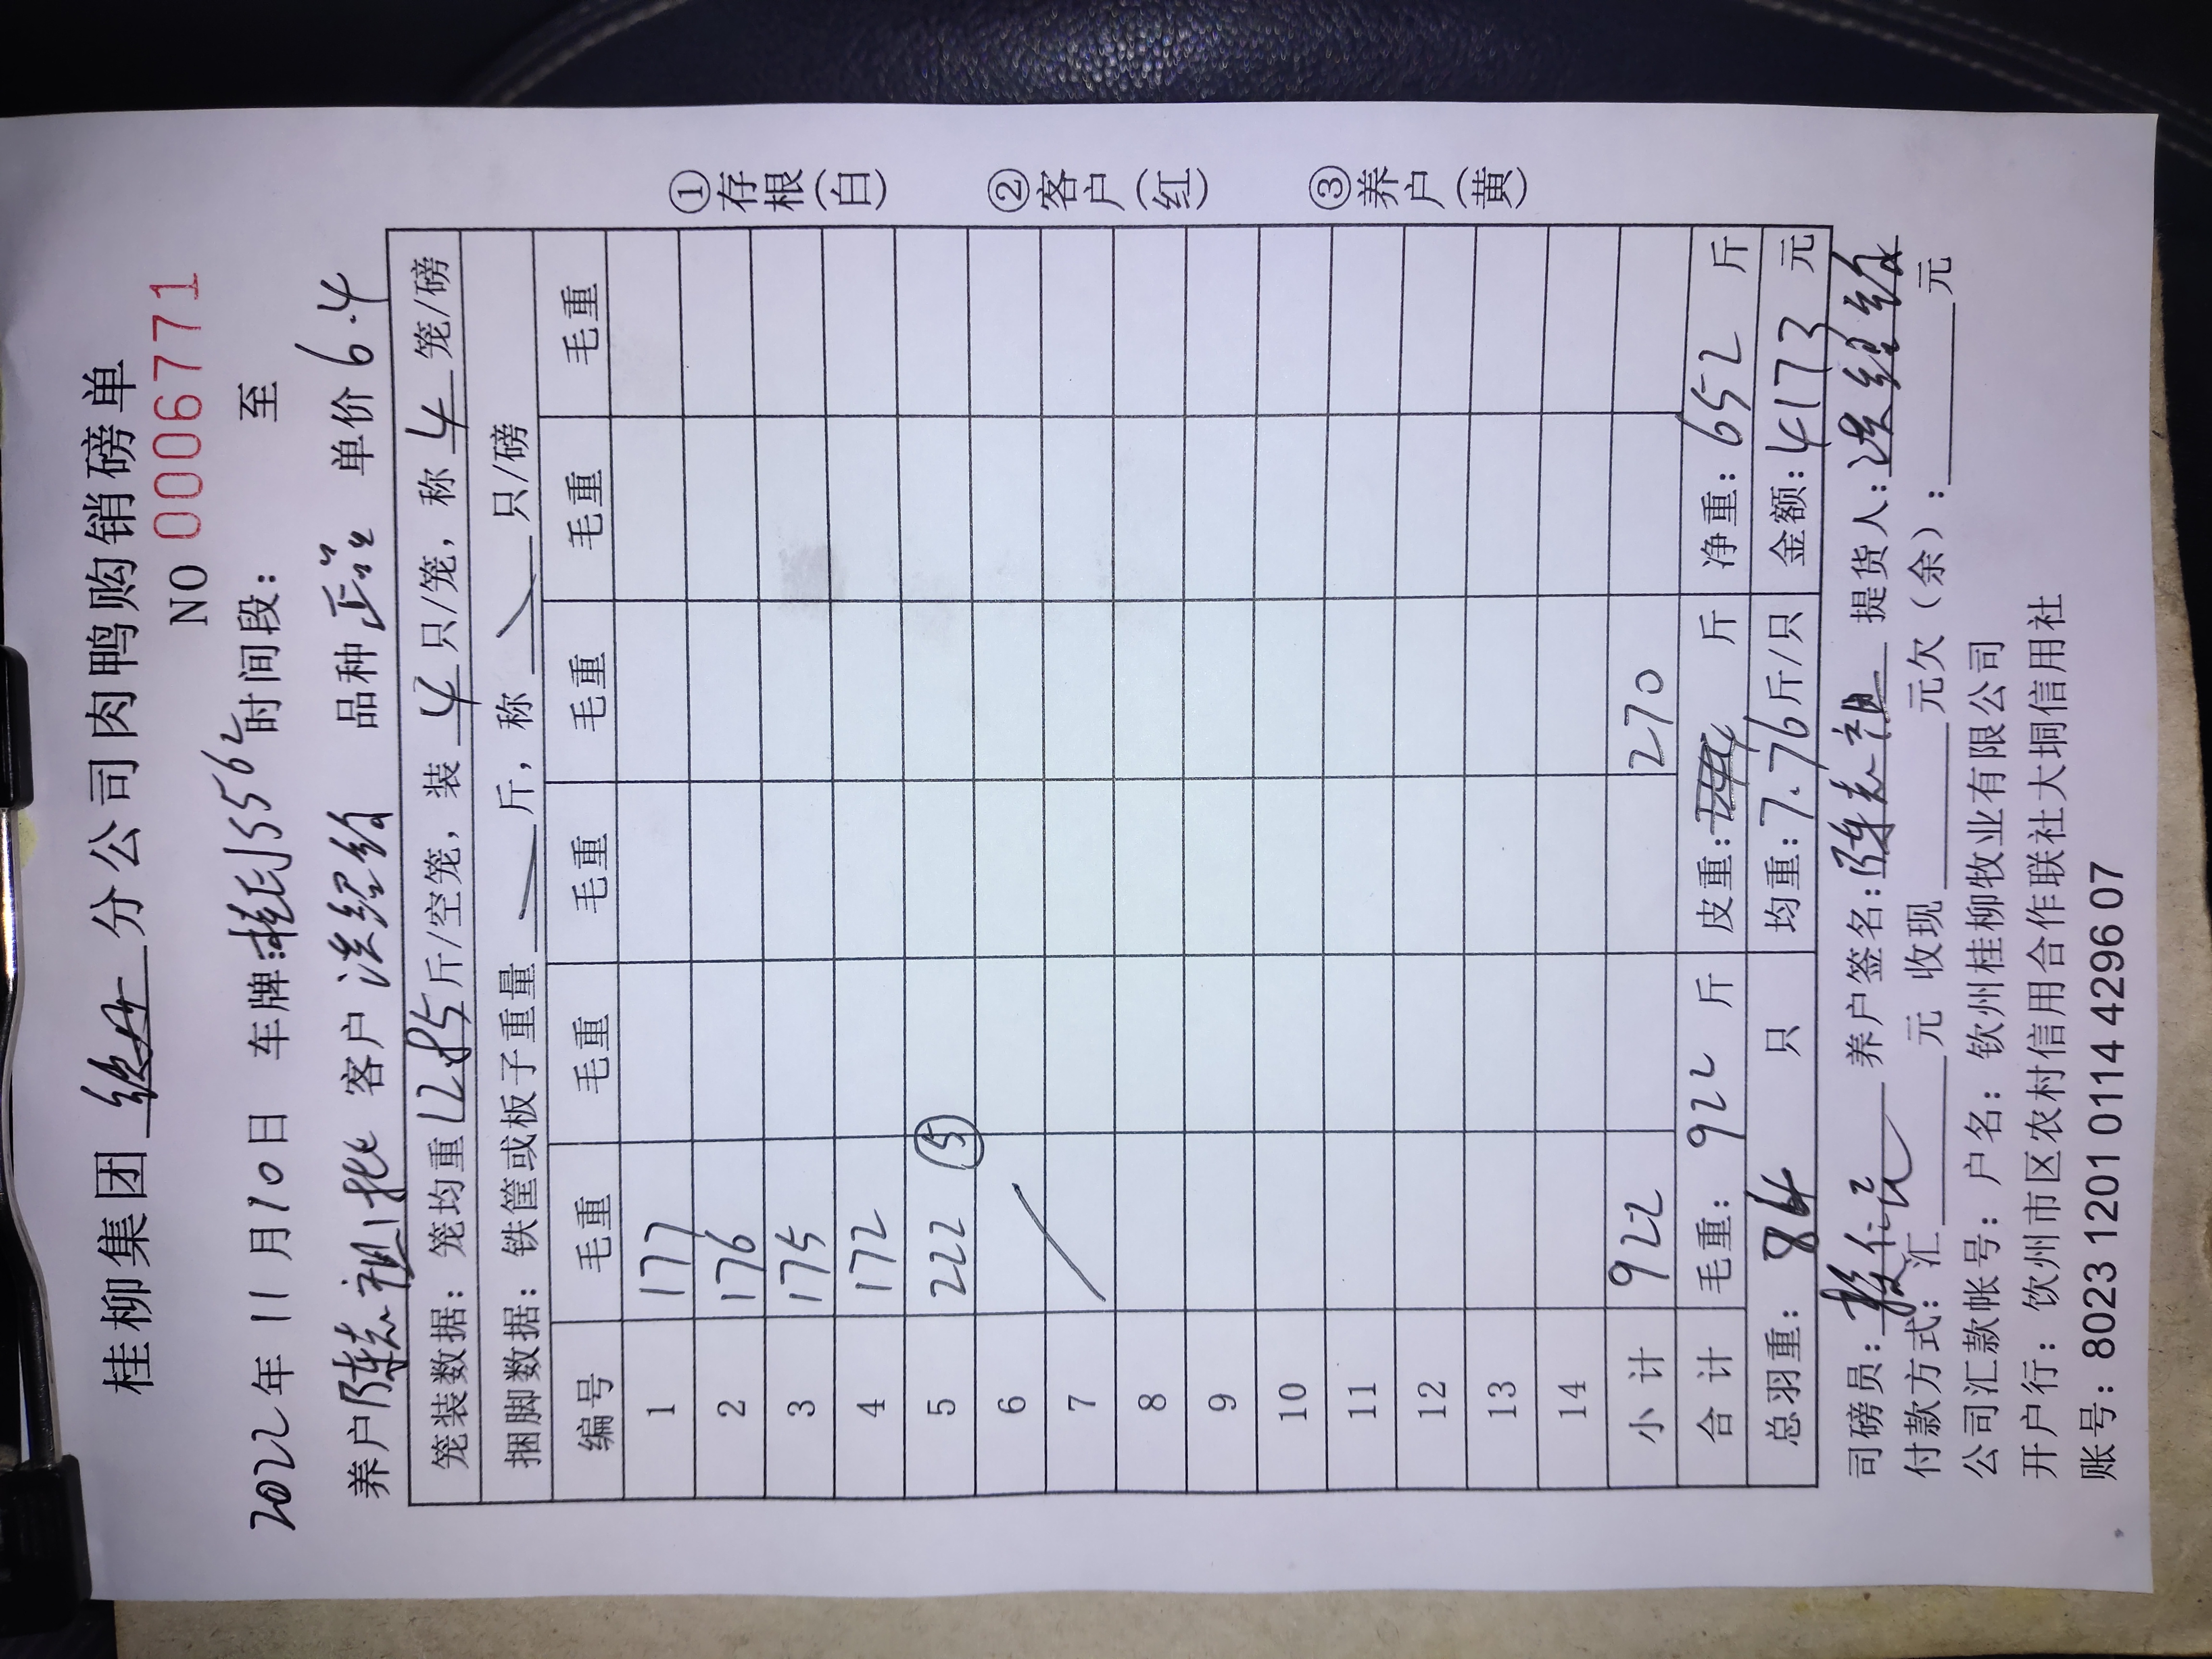 桂柳集团 分公司肉鸭购销磅单
NO 0006771
2022年 11月10日 车牌:桂EJ5562 时间段: 至
养户陈志祖1批 客户 洪经纬 品种 正品 单价 6.4
笼装数据: 笼均重12.85斤/空笼, 装 4 只/笼, 称 4 笼/磅
捆脚数据: 铁筐或板子重量 / 斤, 称 / 只/磅
编号 毛重 毛重 毛重 毛重 毛重 毛重
1 177
2 176
3 175
4 172
5 222 ⑤
6
7
8
9
10
11
12
13
14
小计 922 270
合计 毛重: 922 斤 皮重: 斤 净重: 652 斤
总羽重: 84 只 均重: 7.76斤/只 金额: 4173 元
司磅员: 养户签名: 陈志祖 提货人: 洪经纬
付款方式: 汇 元 收现 元欠(余): 元
公司汇款帐号: 户名: 钦州桂柳牧业有限公司
开户行: 钦州市区农村信用合作联社大垌信用社
账号: 8023 1201 0114 4296 07
①存根(白) ②客户(红) ③养户(黄)